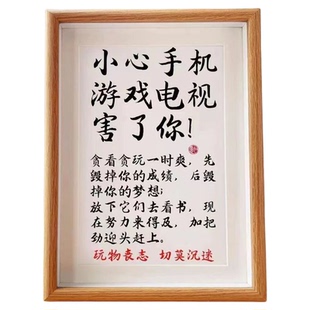 小心手机
游戏电视
害了你!
贪看贪玩一时爽，先
毁掉你的成绩，后毁
掉你的梦想;
放下它们去看书，现
在努力来得及，加把
劲迎头赶上。
玩物丧志 切莫沉迷